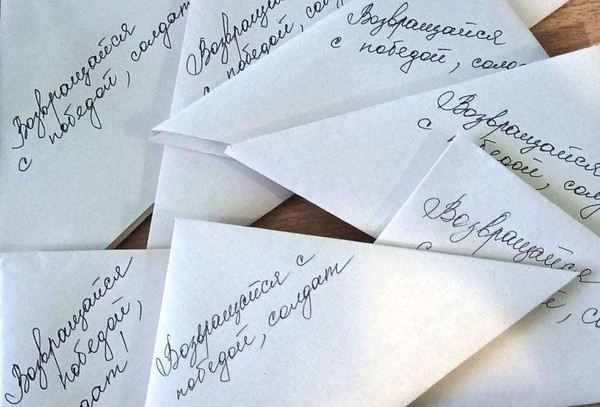 Возвращайся
с победой, солдат
Возвращайся
с победой,
Возвращайся
с победой, солд
Возвращайся
с победой, солд
Возвращайся
Возвращайся
победой,
солдат!
Возвращайся с
победой, солдат